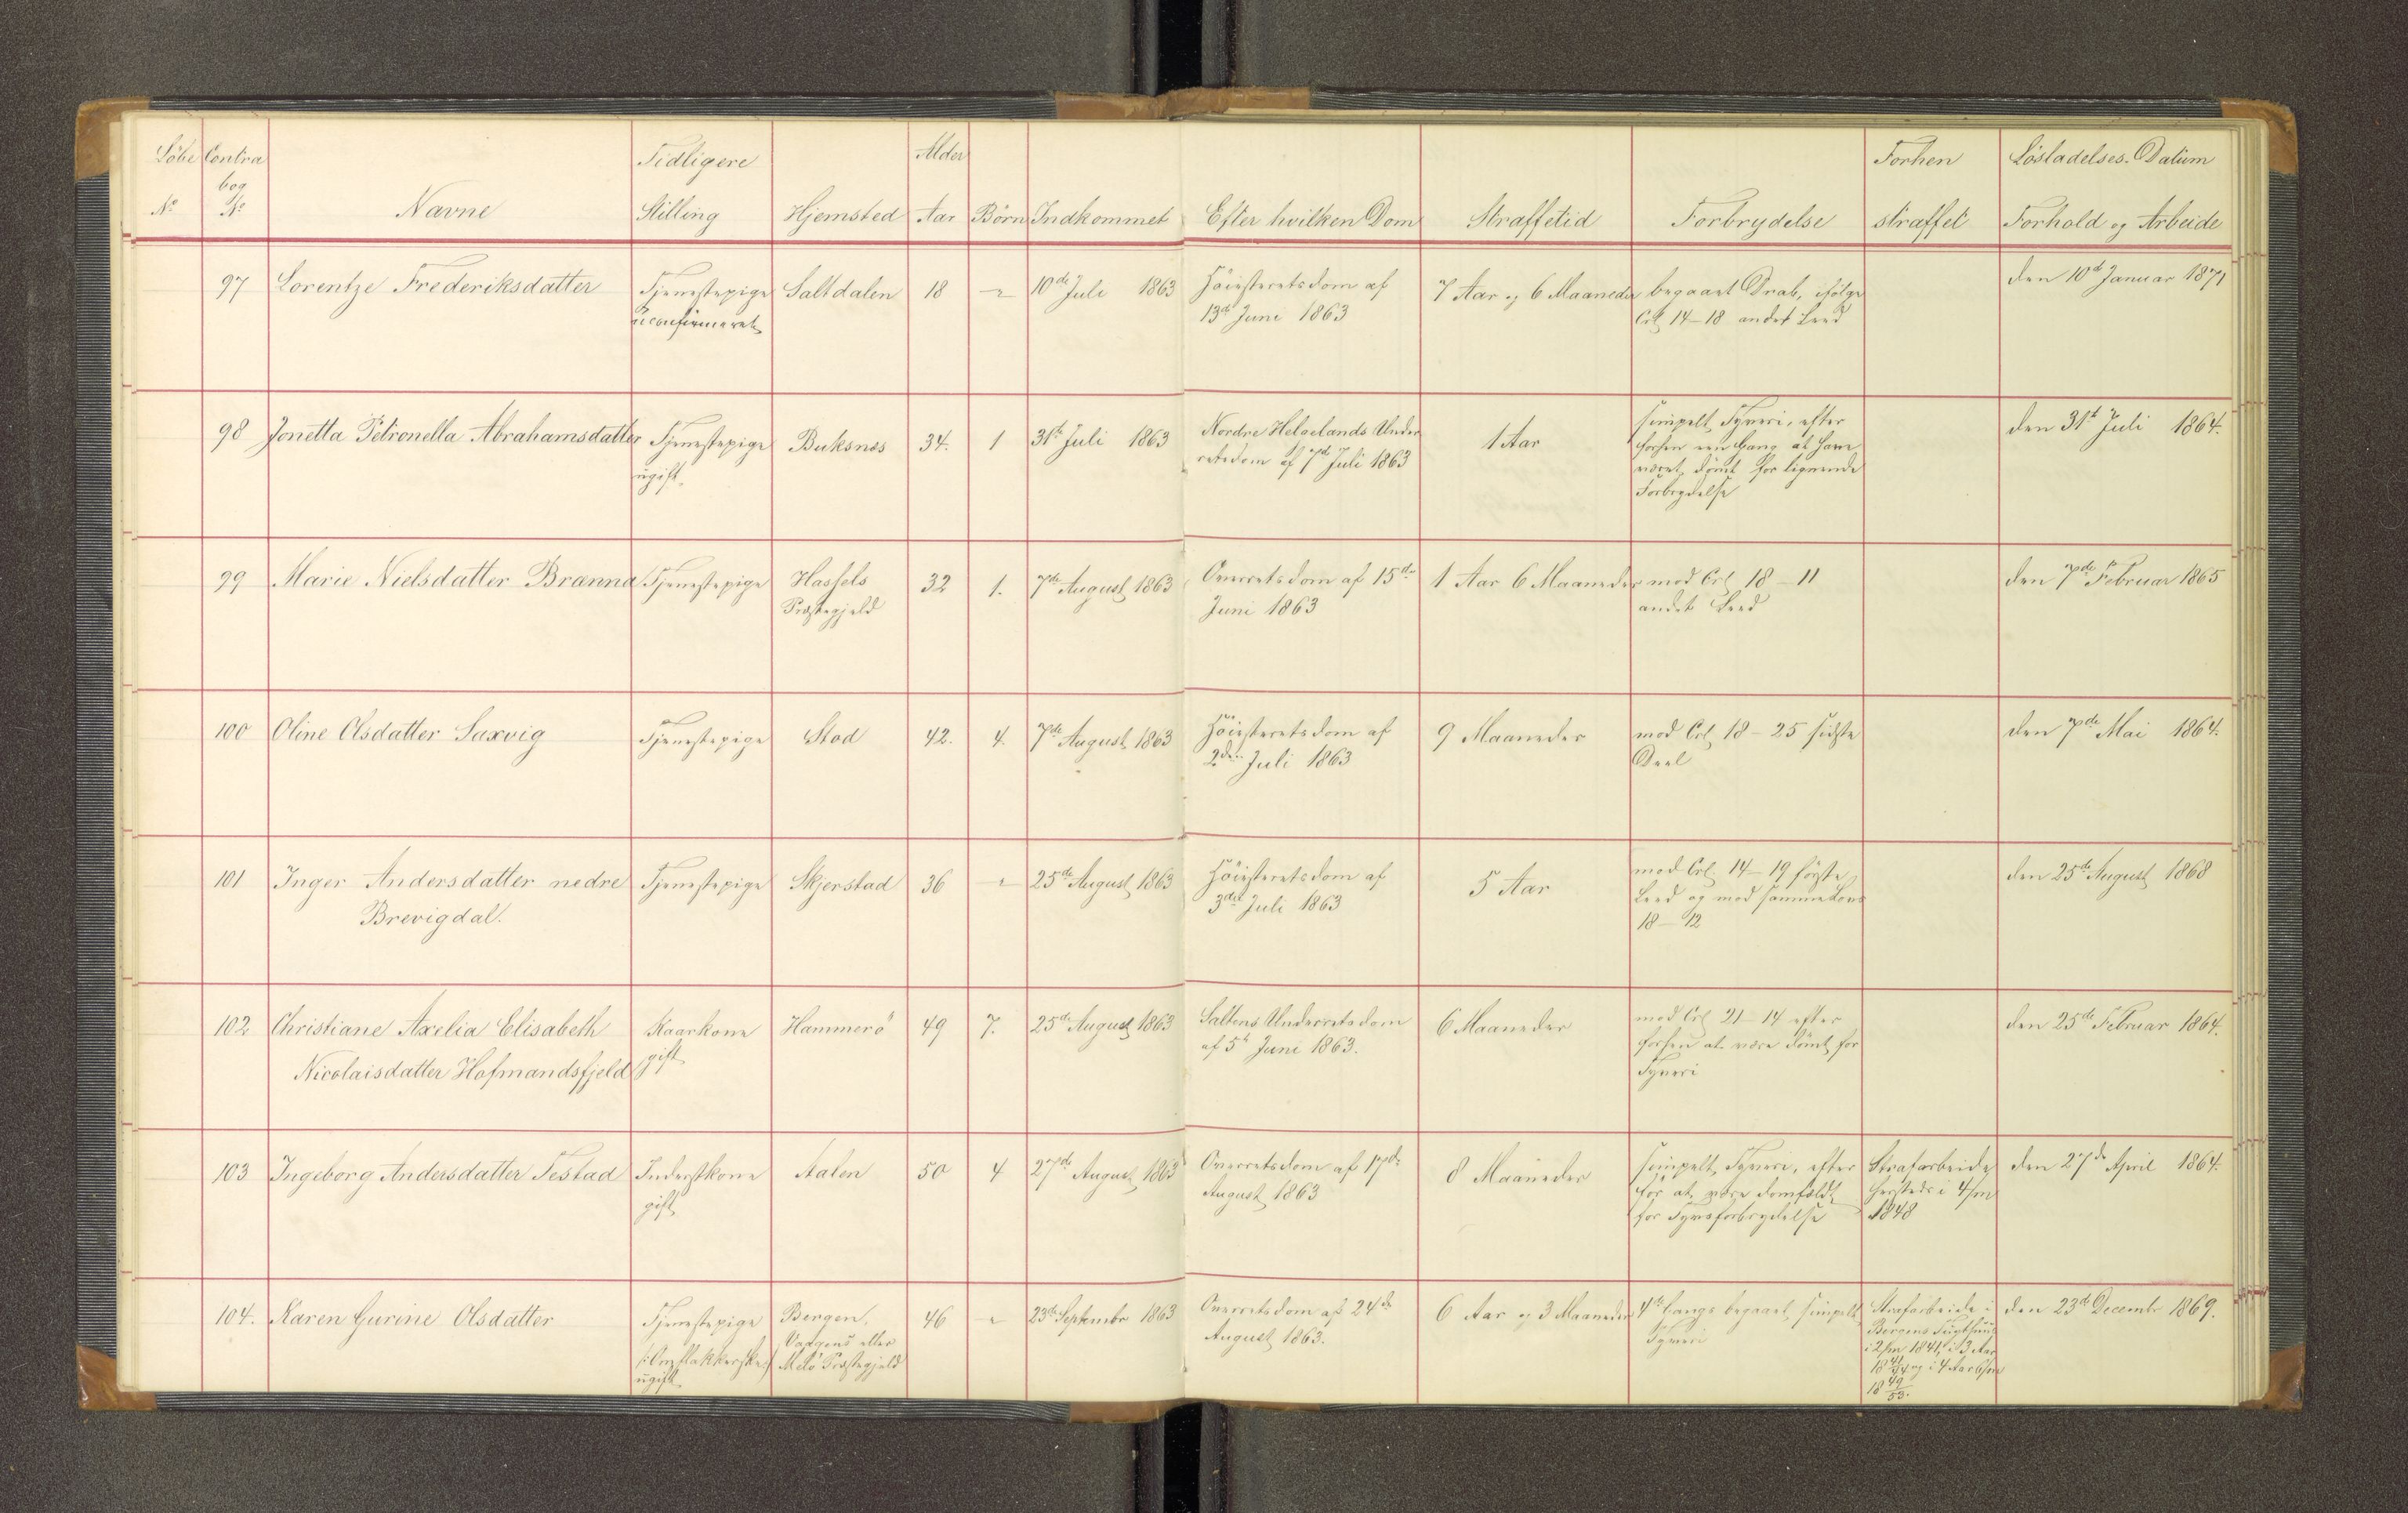 Löbe Contra Tidligere Alder Forhen Løsladelses-Datum
bog
No No Navne Stilling Hjemsted Aar Börn Indkommet Efter hvilken Dom Straffetid Forbrydelse straffet Forhold og Arbeide
97 Lorentze Frederiksdatter Tjenestepige Saltdalen 18 " 10de Juli 1863 Höiesteretsdom af 7 Aar og 6 Maaneder begaaet Drab, ifølge den 10de Januar 1871
uconfirmeret 13de Juni 1863 Crl 14-18 andet Leed
98 Jonetta Petronella Abrahamsdatter Tjenestepige Buksnes 34. 1 31te Juli 1863 Nordre Helgelands Under 1 Aar simpelt Tyveri, efter den 31te Juli 1864.
ugift. retsdom af 7de Juli 1863 forhen een Gang at have
været dömt for lignende
Forbrydelse
99 Marie Nielsdatter Brænna Tjenestepige Hassels 32 1. 7de August 1863 Overretsdom af 15de 1 Aar 6 Maaneder mod Crl 18-11 den 7de Februar 1865
Præstegjeld Juni 1863 andet Leed
100 Oline Olsdatter Saxvig Tjenestepige Stod 42. 4. 7de August 1863 Höiesteretsdom af 9 Maaneder mod Crl 18-25 sidste den 7de Mai 1864.
2den Juli 1863 Deel
101 Inger Andersdatter nedre Tjenestepige Skjerstad 36 " 25de August 1863 Höiesteretsdom af 5 Aar mod Crl 14-19 første den 25de August 1868
Brevigdal. 3die Juli 1863 Leed og mod samme Lovs
18-12
102 Christiane Axelia Elisabeth Kaarkone Hammerö 49 7. 25de August 1863 Saltens Underretsdom 6 Maaneder mod Crl 21-14 efter den 25de Februar 1864.
Nicolaisdatter Hofmandsfjeld gift af 5te Juni 1863. forhen at være dömt for
Tyveri
103 Ingeborg Andersdatter Testad Inderstkone Aalen 50 4 27de August 1863 Overretsdom af 17de 8 Maaneder simpelt Tyveri, efter Strafarbeide den 27de April 1864.
gift August 1863 för at være domfældt hersteds i 4/m
for Tyvsforbrydelse 1848
104. Karen Gurine Olsdatter Tjenestepige Bergen, 46 " 23de Septembr 1863 Overretsdom af 24de 6 Aar og 3 Maaneder 4de Gangs begaaet simpelt Strafarbeide i den 23de Decembr 1869.
/:Omflakkerske:/ Vaagens eller August 1863. Tyveri Bergens Tugthuus
ugift Melö Præstegjeld i 2/m 1841, i 3 Aar
18 41/44 og i 4 Aar 6/m
18 49/53.